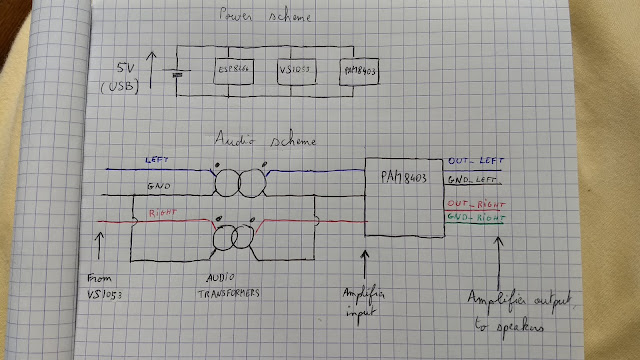 Power scheme
5V
(USB)
ESP8266
VS1053
PAM8403
Audio scheme
LEFT
GND
RIGHT
PAM8403
OUT_LEFT
GND_LEFT
OUT_RIGHT
GND_RIGHT
From
VS1053
AUDIO
TRANSFORMERS
Amplifier
input
Amplifier output
to speakers